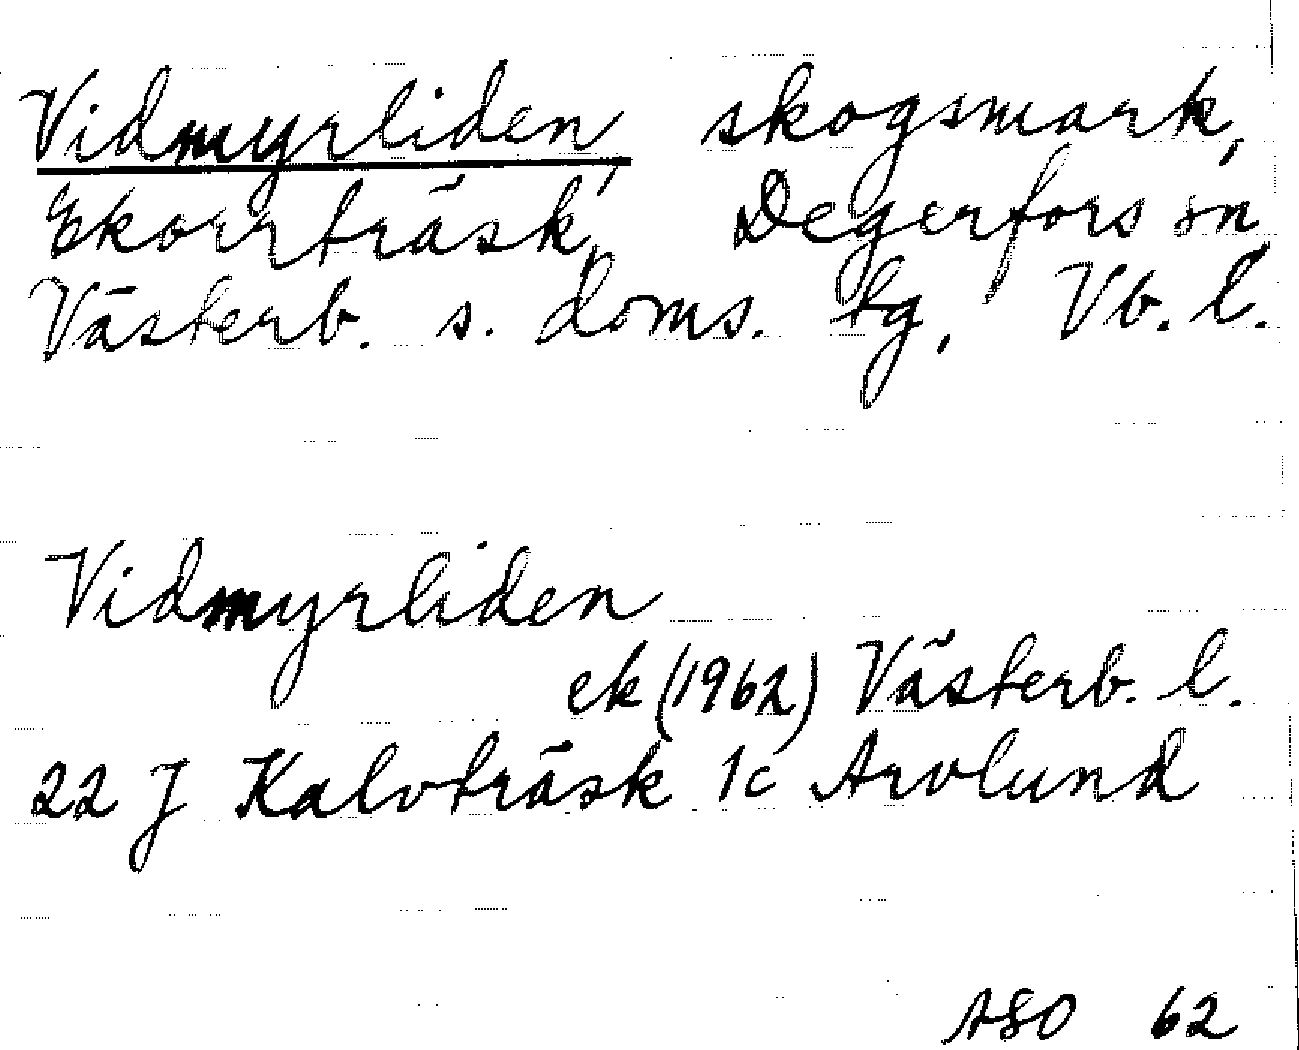 Vidmyrliden, skogsmark,
Ekorrträsk, Degerfors sn
Västerb. s. doms. tg, Vb. l.
Vidmyrliden
ek (1962) Västerb. l.
22 J Kalvträsk 1c Arvlund
ASO 62